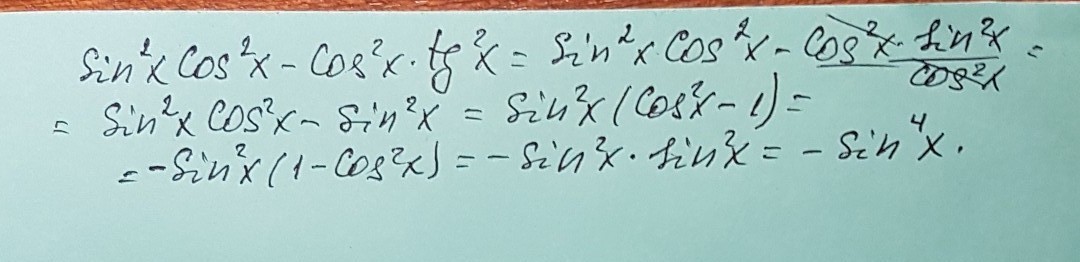 sin²x cos²x - cos²x · tg²x = sin²x cos²x - cos²x · sin²x / cos²x =
= sin²x cos²x - sin²x = sin²x (cos²x - 1) =
= - sin²x (1 - cos²x) = - sin²x · sin²x = - sin⁴x.